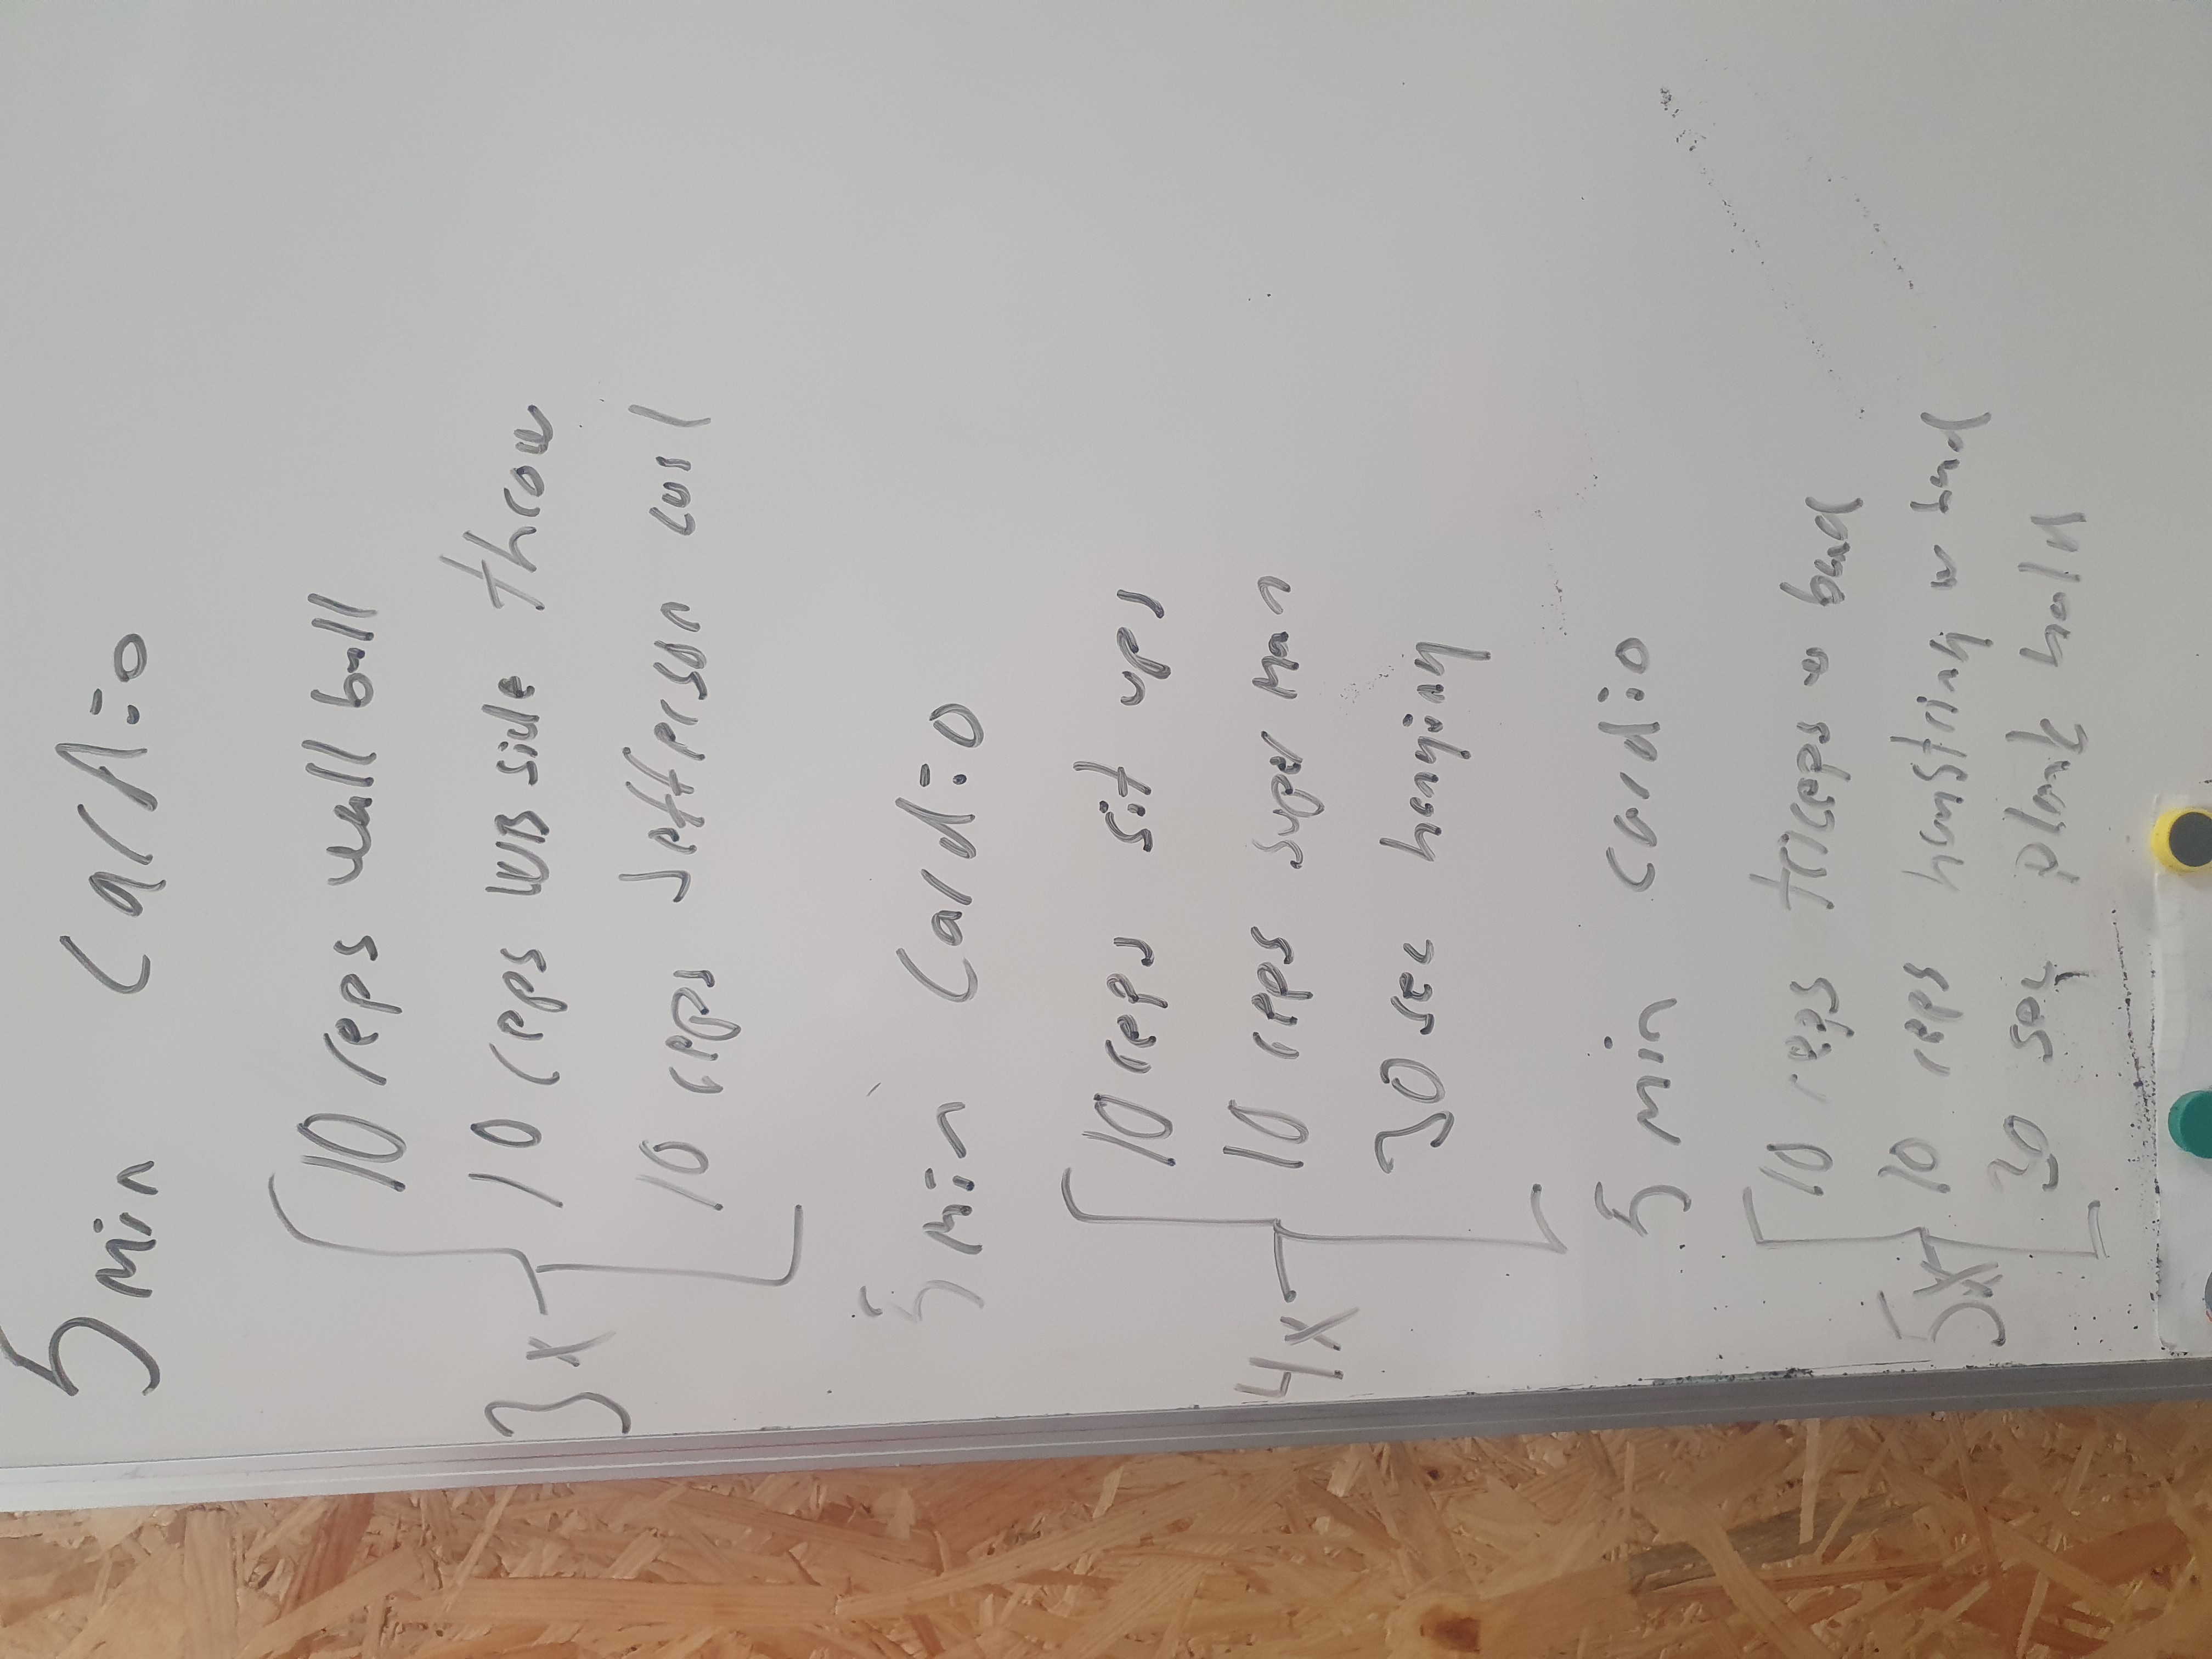 5 min Cardio
10 reps wall ball
3x 10 reps WB side throw
10 reps Jefferson curl
5 min Cardio
10 reps sit ups
4x 10 reps super man
30 sec hanging
5 min cardio
10 reps triceps w band
5x 10 reps hamstring w band
30 sec plank hold